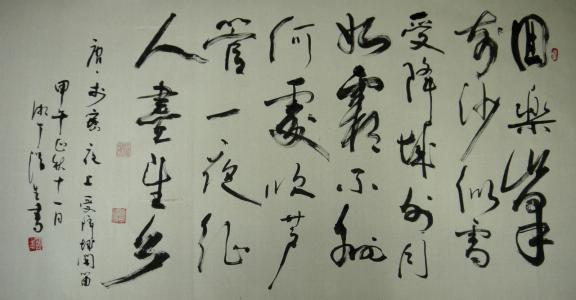 回樂峯
前沙似雪
受降城外月
如霜不知
何處吹芦
管一夜征
人盡望乡
唐、李益夜上受降城闻笛
甲午 十一日
書